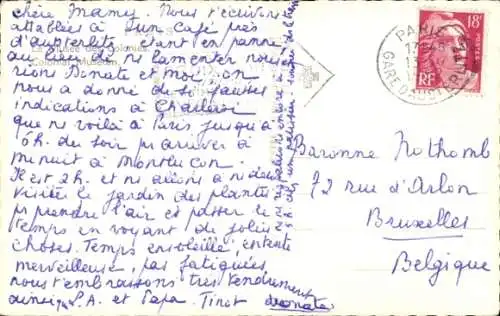 chère Mamy. Nous t'écrivons
attablées à d'un café près
d'austerlitz, étant en panne,
au lieu de ne lamenter nous
rions Donate et moi, on
nous a donné de si fausses
indications à Charleroi
que ne voilà à Paris jusqu'à
6h. du soir pr arriver à
minuit à Montluçon.
Il est 2h. et ns allons a ns deux
visiter le jardin des plantes
pr prendre l'air et passer le
temps en voyant de jolies
choses. Temps ensoleillé, entente
merveilleuse, pas fatiguées,
nous t'embrassons très tendrement
ainsi que P.A. et Papa. Tinot Donate
Musée des Colonies
Colonial Museum
PARIS
GARE D'AUSTERLITZ
18F
RF
Baronne Nothomb
72 rue d'Arlon
Bruxelles
Belgique